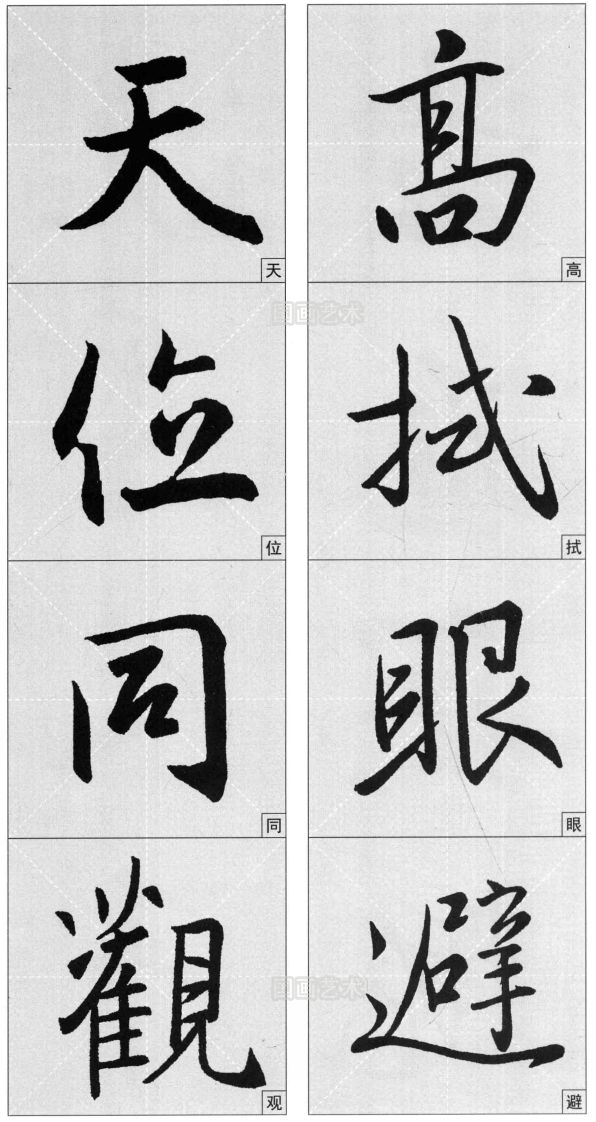 高
高
拭
拭
眼
眼
避
避
天
天
位
位
同
同
觀
观
国画艺术
国画艺术